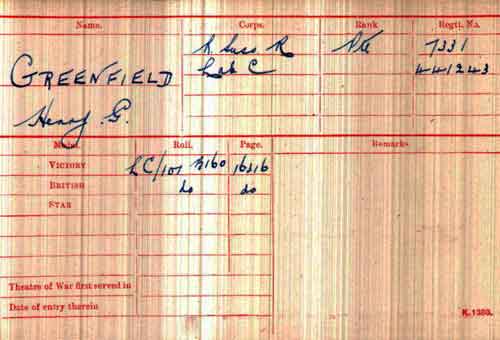 Name. Corps. Rank Regtl. No.
GREENFIELD R. Suss R Pte 7331
Lab C 441243
Henry G.
Medal. Roll. Page. Remarks
VICTORY LC/101 16516
BRITISH do do
STAR
Theatre of War first served in
Date of entry therein
K. 1380.